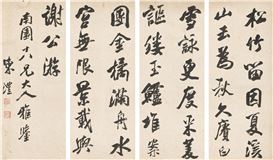 松竹留因夏溪
山去為秋久賡白
雪詠更度采菱
謳縷玉鱸堆案
團金橘滿洲水
宮無限景載與
謝公遊
南園八兄大人雅鑒
陳澧